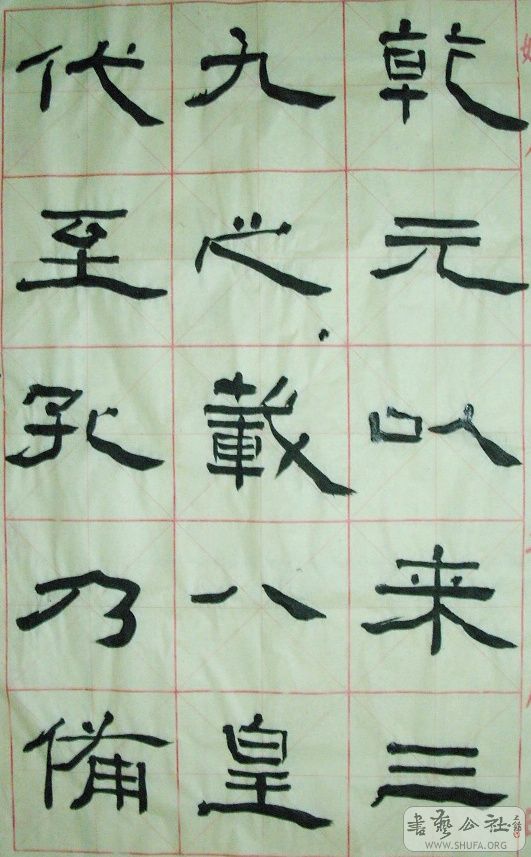 乾元以来三
九之載八皇
代至孔乃備
書藝公社
WWW.SHUFA.ORG